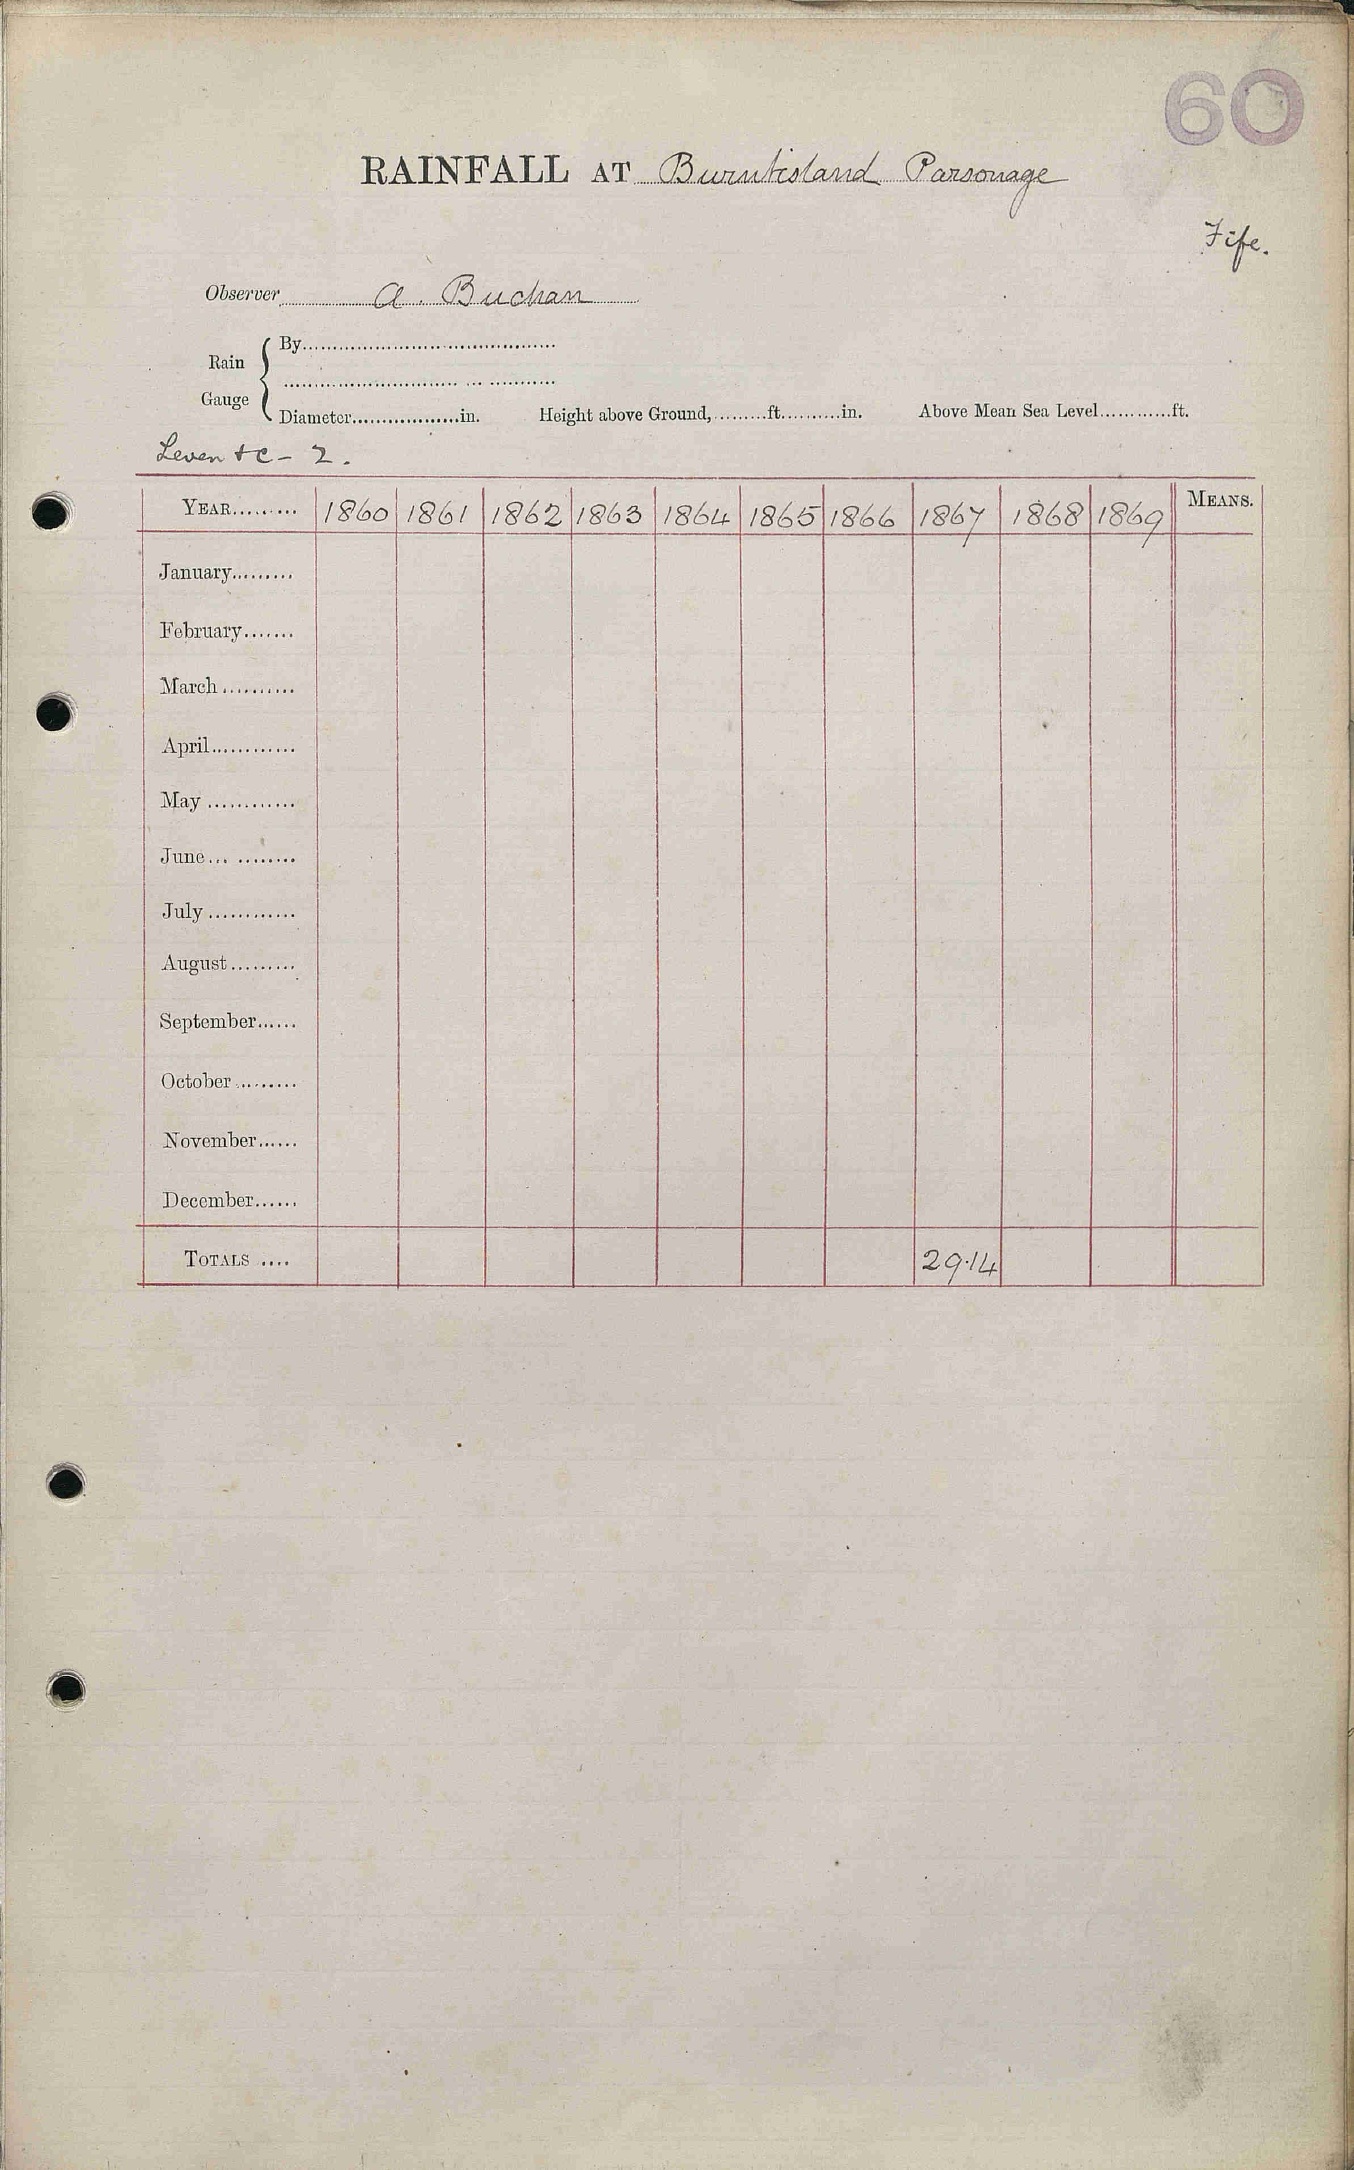 60
RAINFALL AT Burntisland Parsonage
Fife.
Observer A. Buchan
Rain Gauge { By
Diameter in. Height above Ground, ft. in. Above Mean Sea Level ft.
Leven &c - 2.
YEAR 1860 1861 1862 1863 1864 1865 1866 1867 1868 1869 MEANS.
January
February
March
April
May
June
July
August
September
October
November
December
TOTALS 29.14